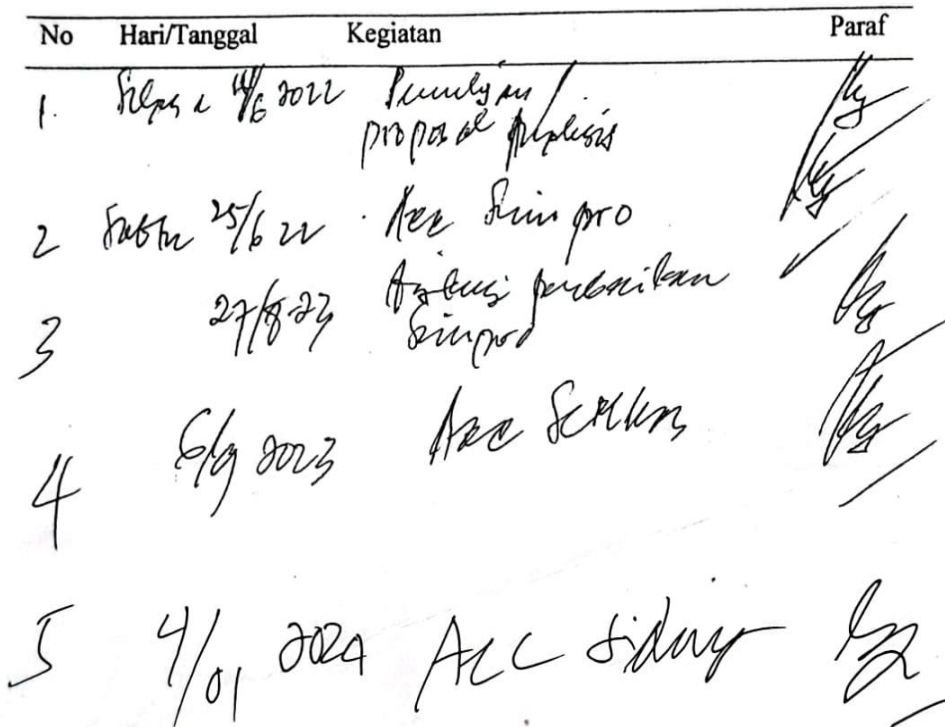 No Hari/Tanggal Kegiatan Paraf
1. Selasa 14/6 2022 Penulisan
proposal
2 Sabtu 25/6 22 Acc Sempro
3 27/8-23 perbaikan
Sempro
4 6/9 2023 Acc
5 4/01 2024 Acc Sidang